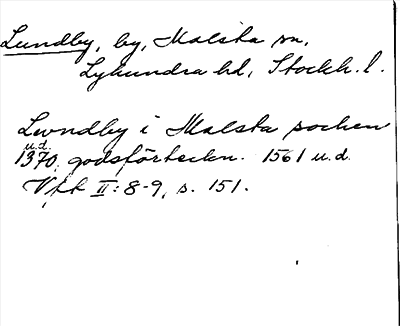 Lundby, by, Malsta sn,
Lyhundra hd, Stockh. l.
Lwndby i Malsta sochen
u.d.
1370. godsförteckn. 1561 u.d.
Vfk II: 8-9, s. 151.